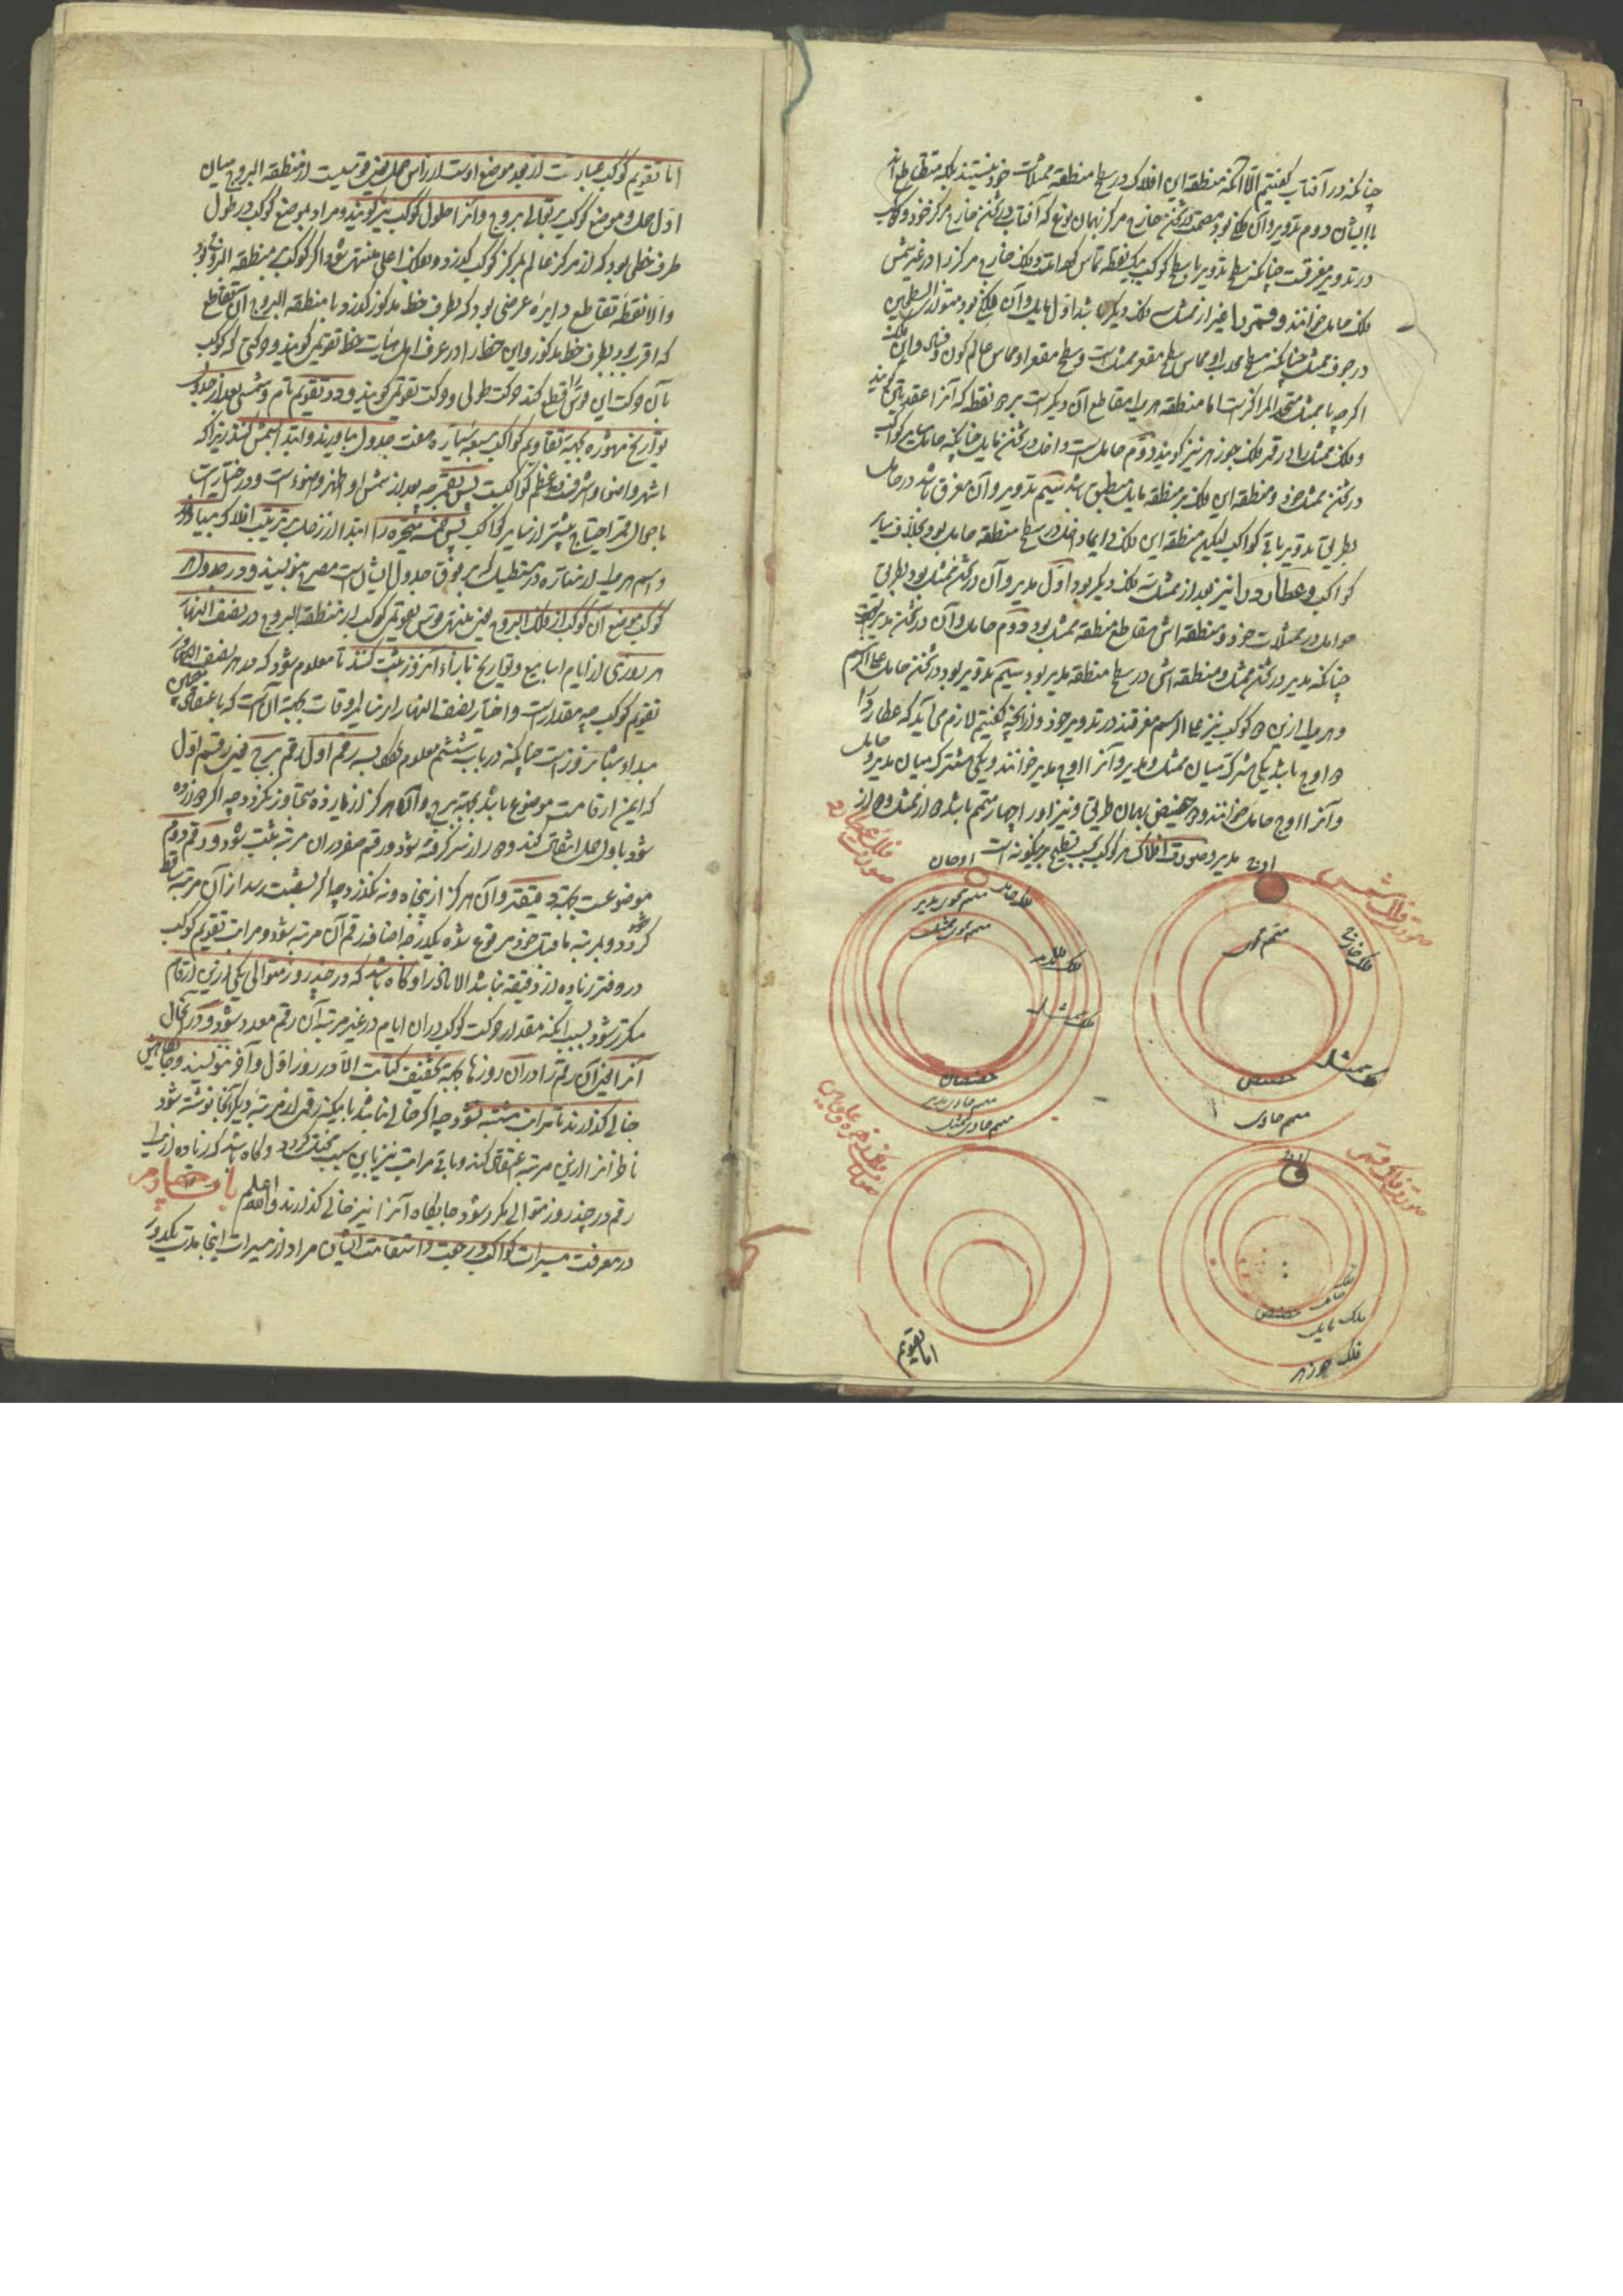 چنانکه در آفتاب گفتیم الا آنکه منطقه این افلاک در سطح منطقه ممثلات خود نیستند بلکه متقاطع اند
با ایشان دوم تدویر و آن فلکی بود مصمت در ثخن خارج مرکز بهمان نوع که آفتاب در ثخن خارج مرکز خود و کوکب
در تدویر مغرقست چنانکه سطح تدویر با سطح کوکب بیک نقطه تماس کند و فلک خارج مرکز را در غیر شمس
فلک حامل خوانند و قمر را غیر از ممثل سه فلک دیگر باشد اول مایل و آن فلکی بود متوازی السطحین
در جوف ممثل چنانکه سطح محدب او مماس سطح مقعر ممثل است و سطح مقعر او مماس عالم کون و فساد و این فلک
اگرچه با ممثل متحد المرکز است اما منطقه هر یک مقاطع آن دیگر است بر دو نقطه که آنرا عقدتین گویند
و فلک ممثل را در قمر فلک جوزهر نیز گویند دوم حامل است واقع در ثخن مایل چنانکه حامل سایر کواکب
در ثخن ممثل خود و منطقه این فلک بر منطقه مایل منطبق باشد سیم تدویر و آن مغرق باشد در حامل
بطریق تدویر باقی کواکب لیکن منطقه این فلک دایما در سطح منطقه حامل بود بخلاف سایر
کواکب و عطارد را نیز بعد از ممثل سه فلک دیگر بود اول مدیر و آن در ثخن ممثل بود بطریق
حوامل در ممثلات خود و منطقه اش مقاطع منطقه ممثل بود دوم حامل و آن در ثخن مدیر است
چنانکه مدیر در ثخن ممثل و منطقه اش در سطح منطقه مدیر بود سیم تدویر بود در ثخن حامل علی الرسم
و هر یک ازین دو کوکب نیز علی الرسم مغرقند در تدویر خود و از آنچه گفتیم لازم می آید که عطارد را
دو اوج باشد یکی مشترک میان ممثل و مدیر و آنرا اوج مدیر خوانند و یکی مشترک میان مدیر و حامل
و آنرا اوج حامل خوانند و دو حضیض بهمان طریق و نیز او را چهار متمم باشد دو از ممثل و دو از
مدیر و صورت افلاک هر کوکب بحسب تسطیح برینگونه است
صورت فلک شمس
اوج
متمم محوی
فلک خارج
فلک ممثل
حضیض
متمم حاوی
صورت فلک عطارد
اوجان
فلک حامل
متمم محوی مدیر
متمم محوی ممثل
فلک مدیر
فلک ممثل
حضیضان
متمم حاوی مدیر
متمم حاوی ممثل
صورت فلک قمر
اوج
فلک حامل
حضیض
فلک مایل
فلک جوزهر
اما تقویم
اما تقویم کوکب عبارت از بعد موضع اوست از راس حمل یعنی قوسیست از منطقة البروج میان
اول حمل و موضع کوکب بر توالی بروج و آنرا طول کوکب نیز گویند و مراد بموضع کوکب در طول
طرف خطی بود که از مرکز عالم بمرکز کوکب گذرد و بفلک اعلی منتهی شود اگر کوکب بر منطقة البروج بود
و الا نقطه تقاطع دایره عرضی بود که بطرف خط مذکور گذرد با منطقة البروج آن تقاطع
که اقرب بود بطرف خط مذکور و این خط را در عرف اهل هیات خط تقویمی گویند و حرکتی که کوکب
بآن حرکت این قوس را قطع کند حرکت طولی و حرکت تقویمی گویند و در تقویم تام و شمسی بعد از جدول
تواریخ مشهوره بجهة تقاویم کواکب سبعه سیاره هفت جدول بیاورند و ابتدا بشمس کنند زیرا که
اشهر و اضوء و اشرف و اعظم کواکبست پس بقمر چه بعد از شمس او اظهر و اضوء است و در اختیارات
باحوال قمر احتیاج بیشتر از سایر کواکب پس خمسه متحیره را ابتدا از زحل بترتیب افلاک بیاورند
و اسم هر یک ازین سیاره در مستطیلی که بر فوق جدول ایشان است مصرح بنویسند و در جدول هر
کوکب موضع آن کوکب از فلک البروج یعنی منتهی قوس تقویمی کوکب از منطقة البروج در نصف النهار
هر روزی از ایام اسابیع و تواریخ بازاء آنروز ثبت کنند تا معلوم شود که در هر نصف النهار
تقویم کوکب چه مقدارست و اختیار نصف النهار از سایر اوقات بجهة آن است که باعتقاد منجمین
مبداء شبانروز است چنانکه در باب ششم معلوم شود بسه رقم اول رقم برج یعنی رقم اول
که ازین ارقامست موضوع باشد بجهة برج و آن هرگز از یازده تجاوز نکند چه اگر دوازده
شود باول حمل انتقال کند و دور از سر گرفته شود و رقم صفر در آن مرتبه ثبت شود و رقم دوم
موضوعست بجهة درجه و آن هرگز از بیست و نه نگذرد چه اگر بسی رسد از آن مرتبه ساقط
گردد و بمرتبه ما قبل خود مرفوع شده یک درجه اضافه رقم آن مرتبه شود و مراتب تقویم کوکب
در دفتر زیاده از دقیقه نباشد الا نادرا و گاه باشد که در چند روز متوالی یکی ازین ارقام
مکرر شود بسبب آنکه مقدار حرکت کوکب در آن ایام در غیر مرتبه آن رقم معدود شود و در آنحال
آنرا یعنی آن رقم را در آن روزها بجهة تخفیف کتابت الا در روز اول و آخر ننویسند و جایگاهش
خالی گذارند تا مراتب مشتبه نشود چه اگر خالی نباشد بآنکه رقمی از مرتبه دیگر آنجا نوشته شود
ناظر آنرا ازین مرتبه اعتقاد کند و باقی مراتب نیز باین سبب مختلف گردد و گاه باشد که زیاده از یک
رقم در چند روز متوالی مکرر شود جایگاه آنرا نیز خالی گذارند والله اعلم باب چهارم
در معرفت مسیرات کواکب و رجعت و استقامت ایشان مراد از مسیرات اینجا